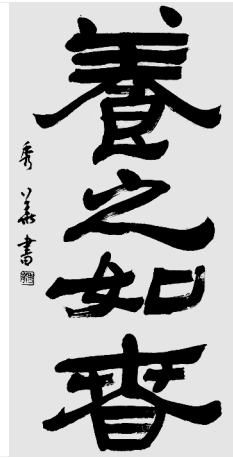 養之如春
秀華書